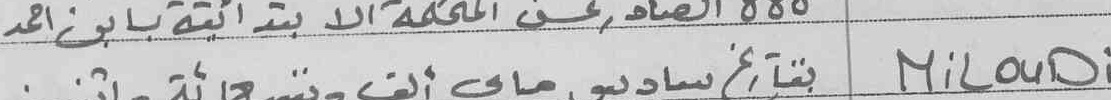 888 الصادر عن المحكمة الابتدائية بابن احمد
بتاريخ سادس ماي ألف وتسعمائة
MiLOUDi